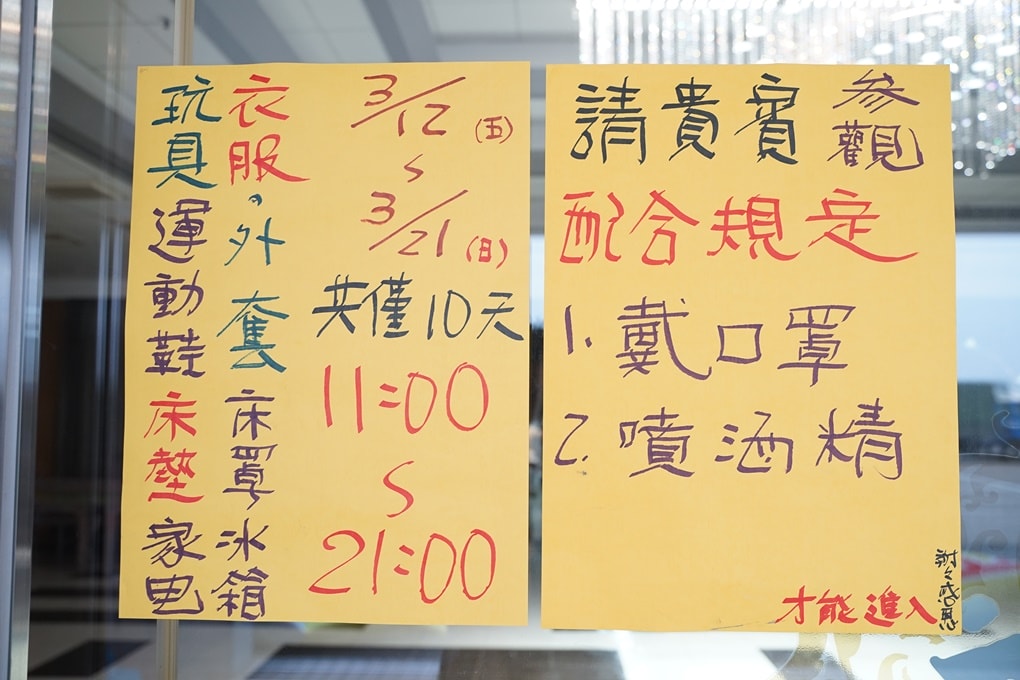 3/12 (五)
S
3/21 (日)
共僅10天
11:00
S
21:00
衣服、外套
床罩
冰箱
玩具
運動鞋
床墊
家电
請貴賓
參觀
配合規定
1. 戴口罩
2. 噴酒精
才能進入